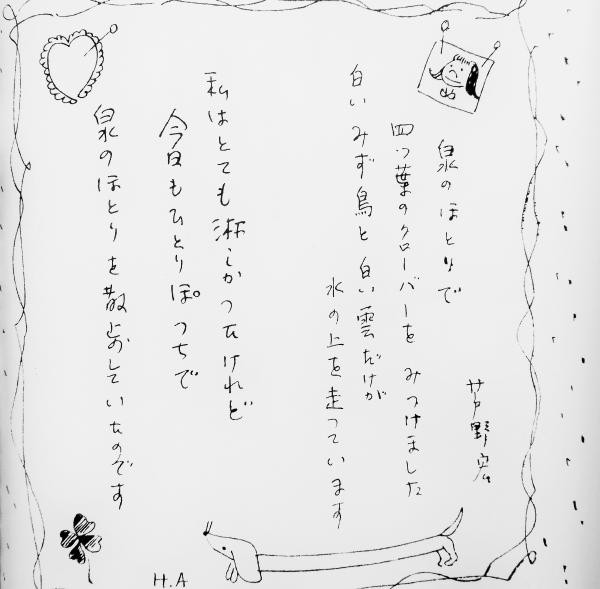 芦野宏
泉のほとりで
四つ葉のクローバーを みつけました
白いみず鳥と白い雲だけが
水の上を走っています
私はとても淋しかったけれど
今日もひとりぽっちで
泉のほとりを散歩していたのです
H.A